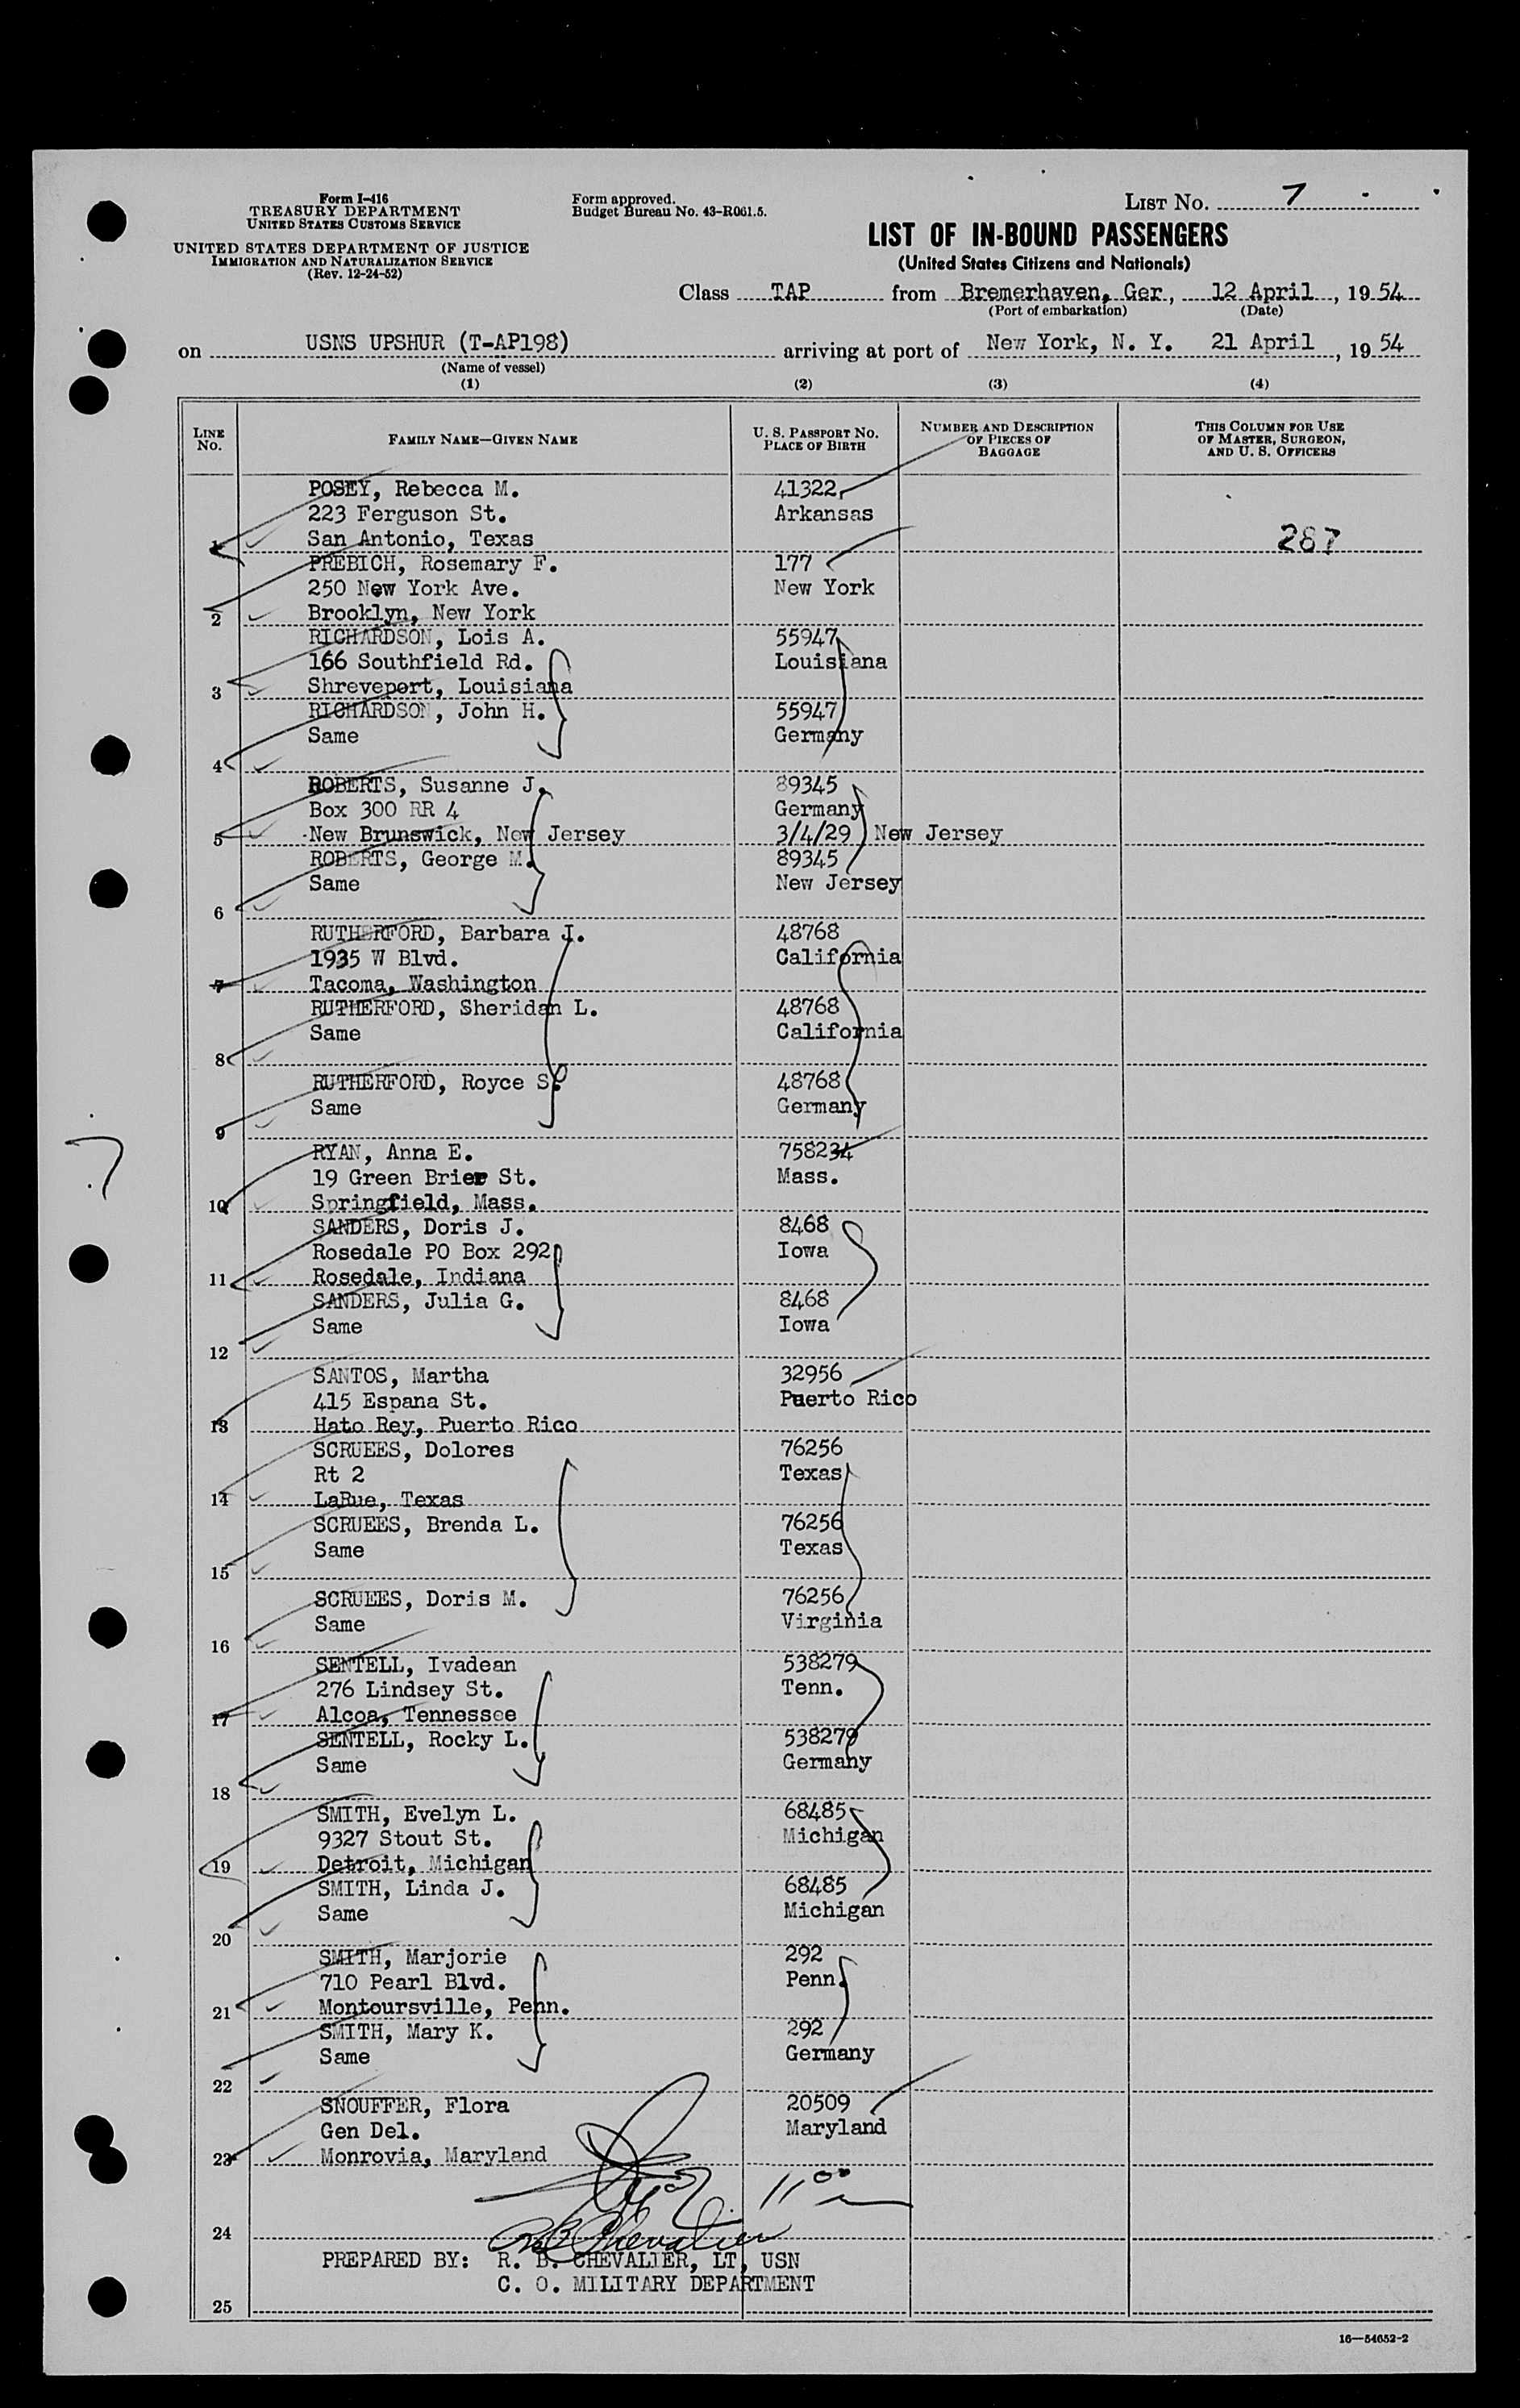 Form I-416
TREASURY DEPARTMENT
UNITED STATES CUSTOMS SERVICE
UNITED STATES DEPARTMENT OF JUSTICE
IMMIGRATION AND NATURALIZATION SERVICE
(Rev. 12-24-52)
Form approved.
Budget Bureau No. 43-R061.5.
LIST No. 7
LIST OF IN-BOUND PASSENGERS
(United States Citizens and Nationals)
Class TAP from Bremerhaven, Ger, 12 April, 1954
(Port of embarkation) (Date)
on USNS UPSHUR (T-AP198) arriving at port of New York, N. Y. 21 April, 19 54
(Name of vessel)
(1) (2) (3) (4)
LINE No. FAMILY NAME—GIVEN NAME U. S. PASSPORT No. PLACE OF BIRTH NUMBER AND DESCRIPTION OF PIECES OF BAGGAGE THIS COLUMN FOR USE OF MASTER, SURGEON, AND U. S. OFFICERS
POSEY, Rebecca M. 41322
223 Ferguson St. Arkansas
1 San Antonio, Texas 287
PREBICH, Rosemary F. 177
250 New York Ave. New York
2 Brooklyn, New York
RICHARDSON, Lois A. 55947
166 Southfield Rd. Louisiana
3 Shreveport, Louisiana
RICHARDSON, John H. 55947
Same Germany
4
ROBERTS, Susanne J. 89345
Box 300 RR 4 Germany
5 New Brunswick, New Jersey 3/4/29 New Jersey
ROBERTS, George M. 89345
Same New Jersey
6
RUTHERFORD, Barbara J. 48768
1935 W Blvd. California
7 Tacoma, Washington
RUTHERFORD, Sheridan L. 48768
Same California
8
RUTHERFORD, Royce S. 48768
Same Germany
9
RYAN, Anna E. 758234
19 Green Brier St. Mass.
10 Springfield, Mass.
SANDERS, Doris J. 8468
Rosedale PO Box 292 Iowa
11 Rosedale, Indiana
SANDERS, Julia G. 8468
Same Iowa
12
SANTOS, Martha 32956
415 Espana St. Puerto Rico
13 Hato Rey, Puerto Rico
SCRUEES, Dolores 76256
Rt 2 Texas
14 LaRue, Texas
SCRUEES, Brenda L. 76256
Same Texas
15
SCRUEES, Doris M. 76256
Same Virginia
16
SENTELL, Ivadean 538279
276 Lindsey St. Tenn.
17 Alcoa, Tennessee
SENTELL, Rocky L. 538279
Same Germany
18
SMITH, Evelyn L. 68485
9327 Stout St. Michigan
19 Detroit, Michigan
SMITH, Linda J. 68485
Same Michigan
20
SMITH, Marjorie 292
710 Pearl Blvd. Penn.
21 Montoursville, Penn.
SMITH, Mary K. 292
Same Germany
22
SNOUFFER, Flora 20509
Gen Del. Maryland
23 Monrovia, Maryland
11 00
24 R B Chevalier
PREPARED BY: R. B. CHEVALIER, LT, USN
C. O. MILITARY DEPARTMENT
25
16—54652-2
7